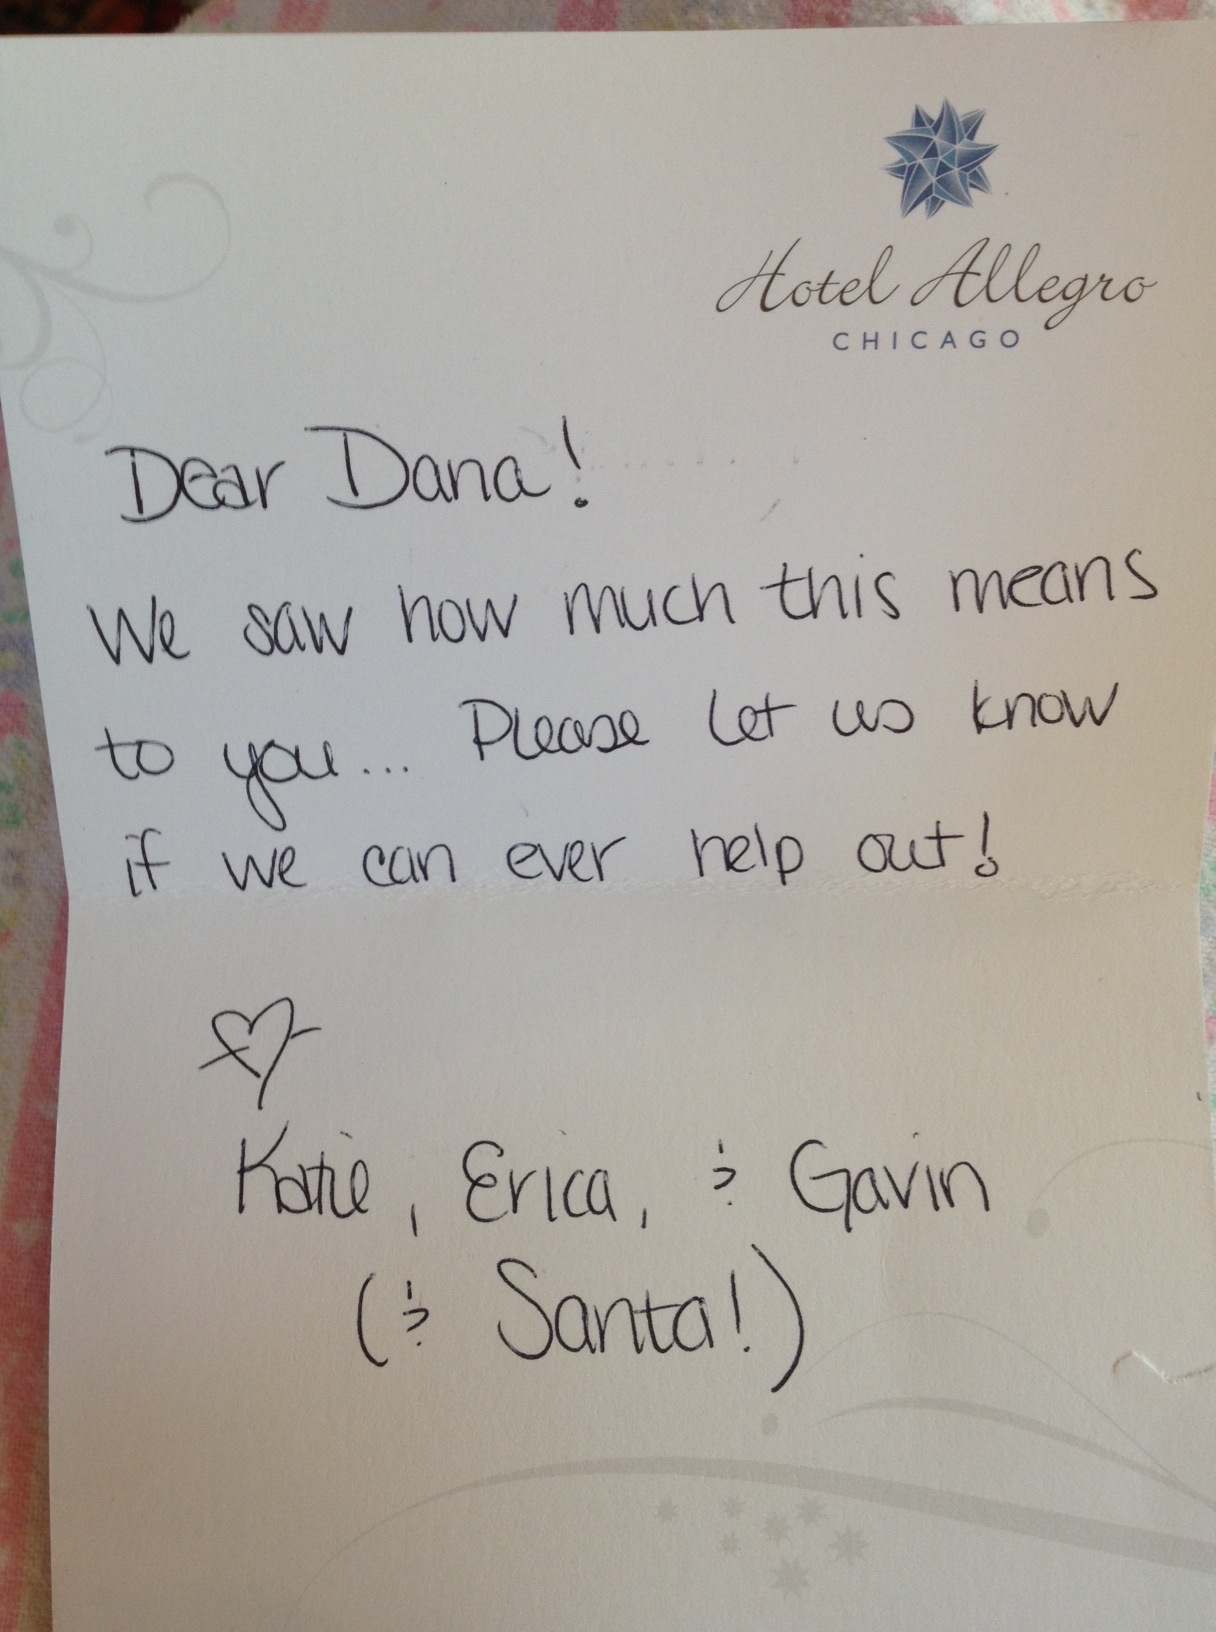 Hotel Allegro
CHICAGO
Dear Dana!
We saw how much this means
to you... Please let us know
if we can ever help out!
Katie, Erica, & Gavin
(& Santa!)